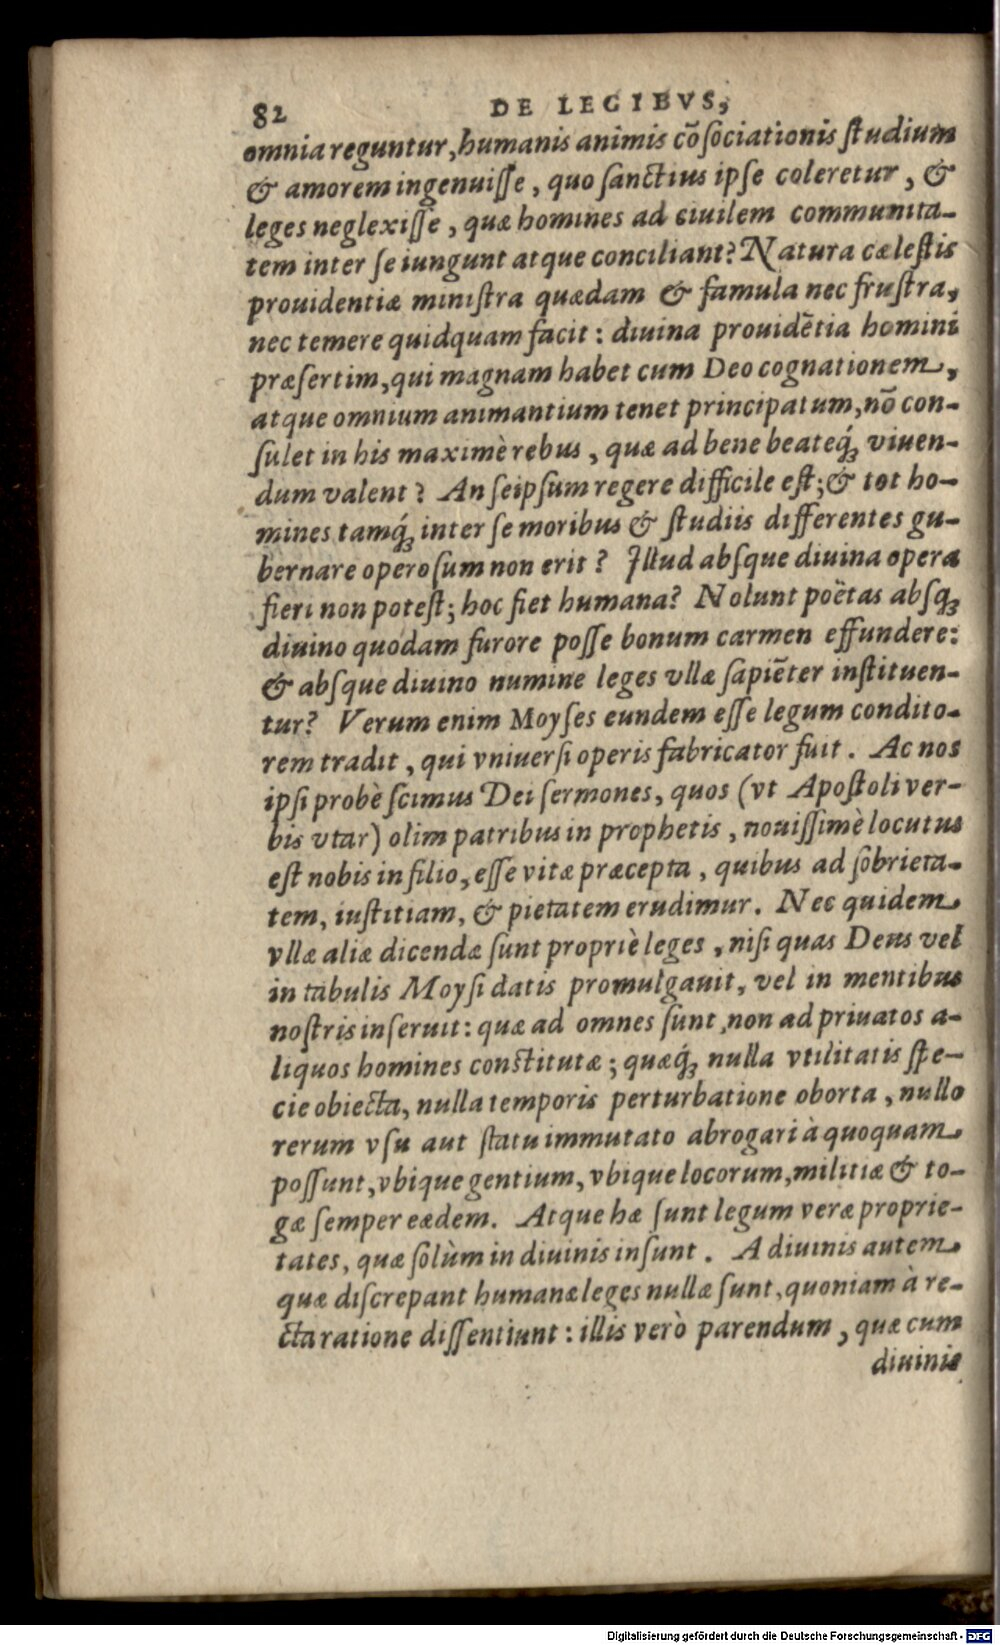 82 DE LEGIBVS,
omnia reguntur, humanis animis cõsociationis studium
& amorem ingenuisse, quo sanctius ipse coleretur, &
leges neglexisse, quæ homines ad ciuilem communita-
tem inter se iungunt atque conciliant? Natura cælestis
prouidentiæ ministra quædam & famula nec frustra,
nec temere quidquam facit: diuina prouidẽtia homini
præsertim, qui magnam habet cum Deo cognationem,
atque omnium animantium tenet principatum, nõ con-
sulet in his maximè rebus, quæ ad bene beateq́; viuen-
dum valent? An seipsum regere difficile est; & tot ho-
mines tamq́; inter se moribus & studiis differentes gu-
bernare operosum non erit? Illud absque diuina opera
fieri non potest; hoc fiet humana? Nolunt poëtas absq;
diuino quodam furore posse bonum carmen effundere:
& absque diuino numine leges vllæ sapiẽter instituen-
tur? Verum enim Moyses eundem esse legum condito-
rem tradit, qui vniuersi operis fabricator fuit. Ac nos
ipsi probè scimus Dei sermones, quos (vt Apostoli ver-
bis vtar) olim patribus in prophetis, nouissimè locutus
est nobis in filio, esse vitæ præcepta, quibus ad sobrieta-
tem, iustitiam, & pietatem erudimur. Nec quidem
vllæ aliæ dicendæ sunt propriè leges, nisi quas Deus vel
in tabulis Moysi datis promulgauit, vel in mentibus
nostris inseruit: quæ ad omnes sunt, non ad priuatos a-
liquos homines constitutæ; quæq́; nulla vtilitatis spe-
cie obiecta, nulla temporis perturbatione oborta, nullo
rerum vsu aut statu immutato abrogari à quoquam
possunt, vbique gentium, vbique locorum, militiæ & to-
gæ semper eædem. Atque hæ sunt legum veræ proprie-
tates, quæ solùm in diuinis insunt. A diuinis autem
quæ discrepant humanæ leges nullæ sunt, quoniam à re-
cta ratione dissentiunt: illis verò parendum, quæ cum
diuinis
Digitalisierung gefördert durch die Deutsche Forschungsgemeinschaft - DFG